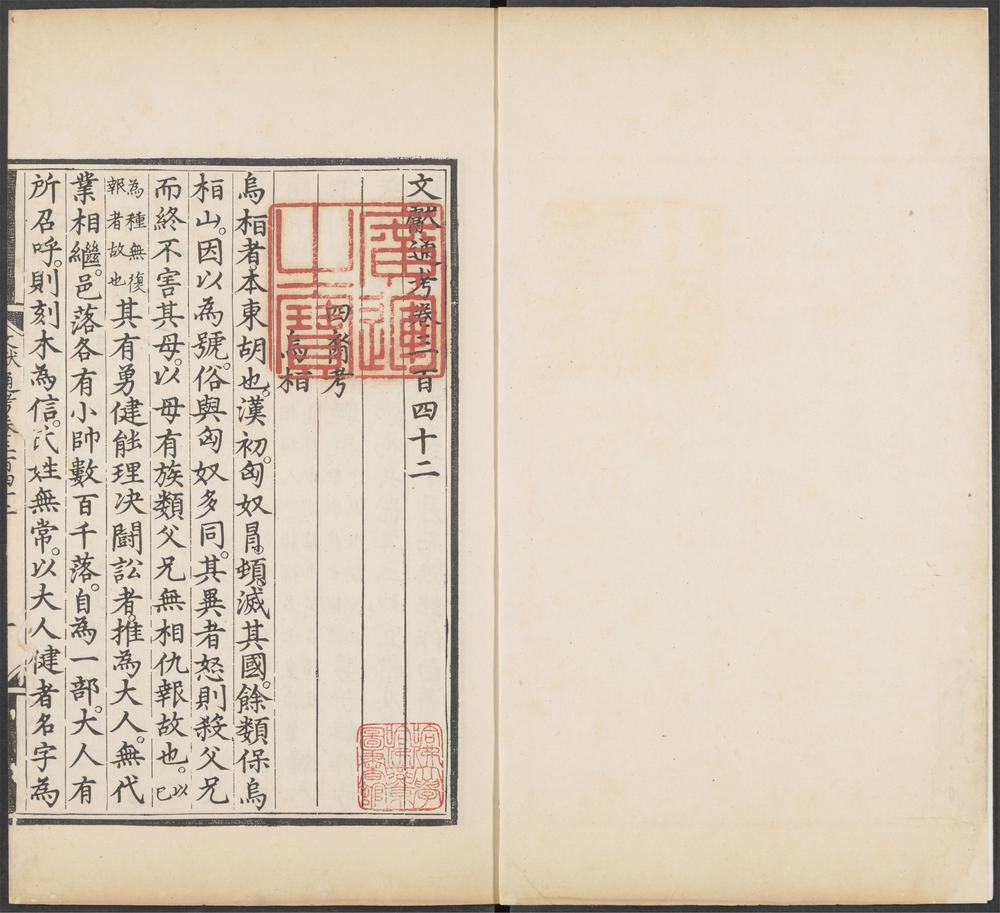 文獻通考卷三百四十二
四裔考
烏桓
烏桓者本東胡也。漢初。匈奴冒。頓。滅其國。餘類保烏
桓山。因以為號。俗與匈奴多同。其異者怒則殺父兄
而終不害其母。以母有族類父兄無相仇報故也。以已
為種無復報者故也其有勇健能理决鬭訟者。推為大人。無代
業相繼。邑落各有小帥數百千落。自為一部。大人有
所召呼。則刻木為信。氏姓無常。以大人健者名字為
廣運之寶
哈佛大學哈佛燕京圖書館